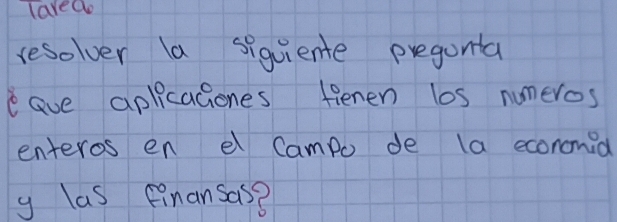 Tarea
resolver la siguiente pregunta
¿Que aplicaciones tienen los numeros
enteros en el campo de la economia
y las finansas?